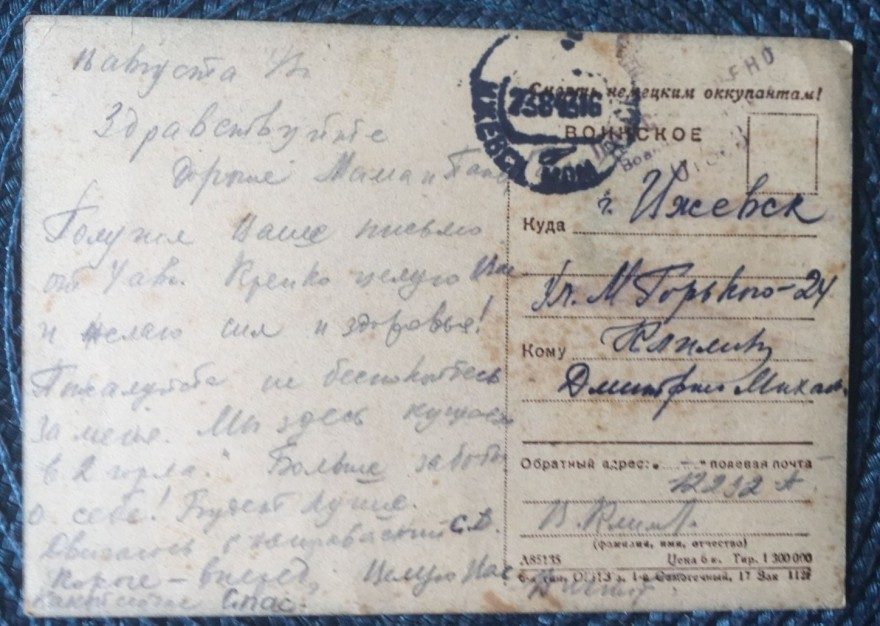 августа
Здравствуйте
Дорогие Мама и Папа
Получил Ваше письмо
от 7 авг. Крепко целую Вас
и желаю сил и здоровья!
Пожалуйста не беспокойтесь
За меня. Мы здесь кушаем
в 2 горла." Больше заботы
о себе! Будет лучше.
Двигаюсь в направлении С.В.
Короче – вперед. Целую Вас
Спас.
Смерть немецким оккупантам!
ВОИНСКОЕ
ИЖЕВСК
23 8 43 16
Куда г. Ижевск
Ул. М Горького - 24
Кому
Дмитрию Михай
Обратный адрес: „ — " полевая почта
12232 А
В. Климов
(фамилия, имя, отчество)
А85135 Цена 6 к. Тир. 1 300 000
17 Зак